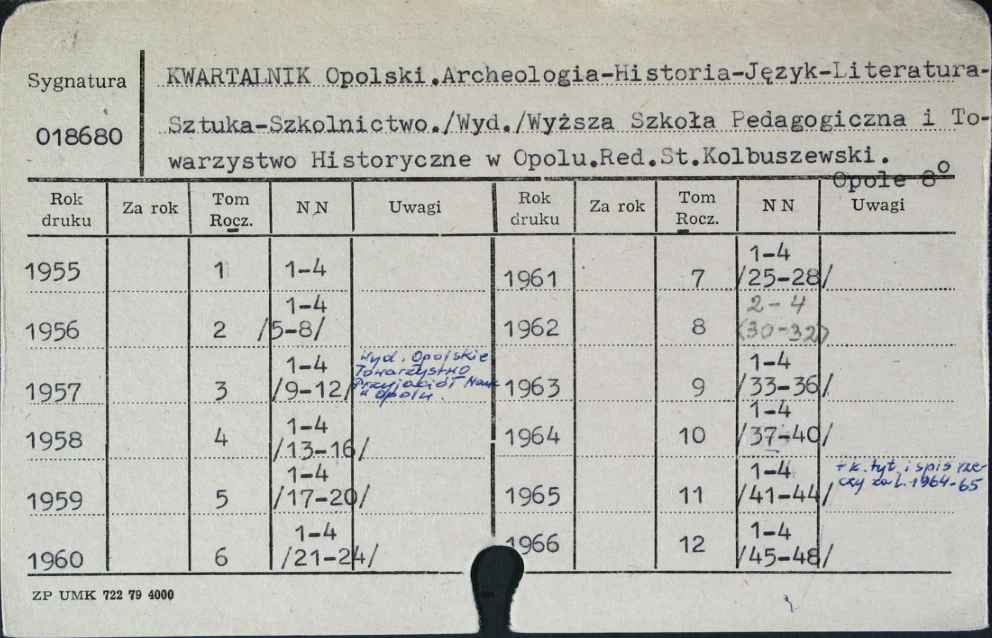 Sygnatura
018680
KWARTALNIK Opolski.Archeologia-Historia-Język-Literatura-
Sztuka-Szkolnictwo./Wyd./Wyższa Szkoła Pedagogiczna i To-
warzystwo Historyczne w Opolu.Red.St.Kolbuszewski.
Opole 8°
Rok druku Za rok Tom Rocz. NN Uwagi Rok druku Za rok Tom Rocz. NN Uwagi
1955 1 1-4
1956 2 1-4 /5-8/
1957 3 1-4 /9-12/ Wyd. Opolskie
Towarzystwo
Przyjaciół Nauk
w Opolu.
1958 4 1-4 /13-16/
1959 5 1-4 /17-20/
1960 6 1-4 /21-24/
1961 7 1-4 /25-28/
1962 8 2-4 (30-32)
1963 9 1-4 /33-36/
1964 10 1-4 /37-40/
1965 11 1-4 /41-44/ + k. tyt. i spis rze-
czy za l. 1964-65
1966 12 1-4 /45-48/
ZP UMK 722 79 4000